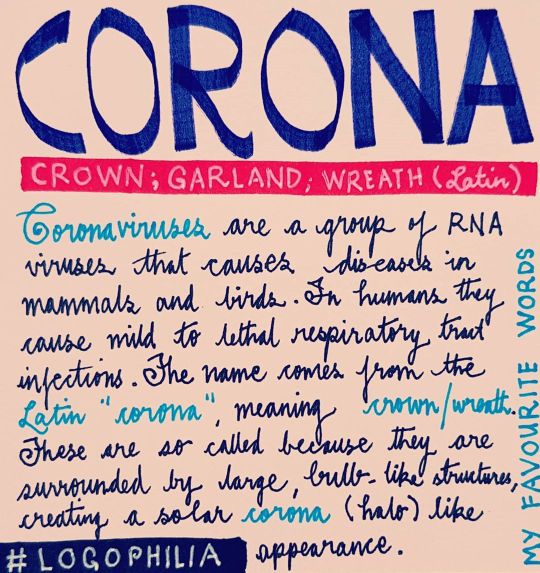 CORONA
CROWN; GARLAND; WREATH (Latin)
Coronaviruses are a group of RNA
viruses that causes diseases in
mammals and birds. In humans they
cause mild to lethal respiratory tract
infections. The name comes from the
Latin "corona", meaning crown/wreath.
These are so called because they are
surrounded by large, bulb-like structures,
creating a solar corona (halo) like
appearance.
#LOGOPHILIA
MY FAVOURITE WORDS